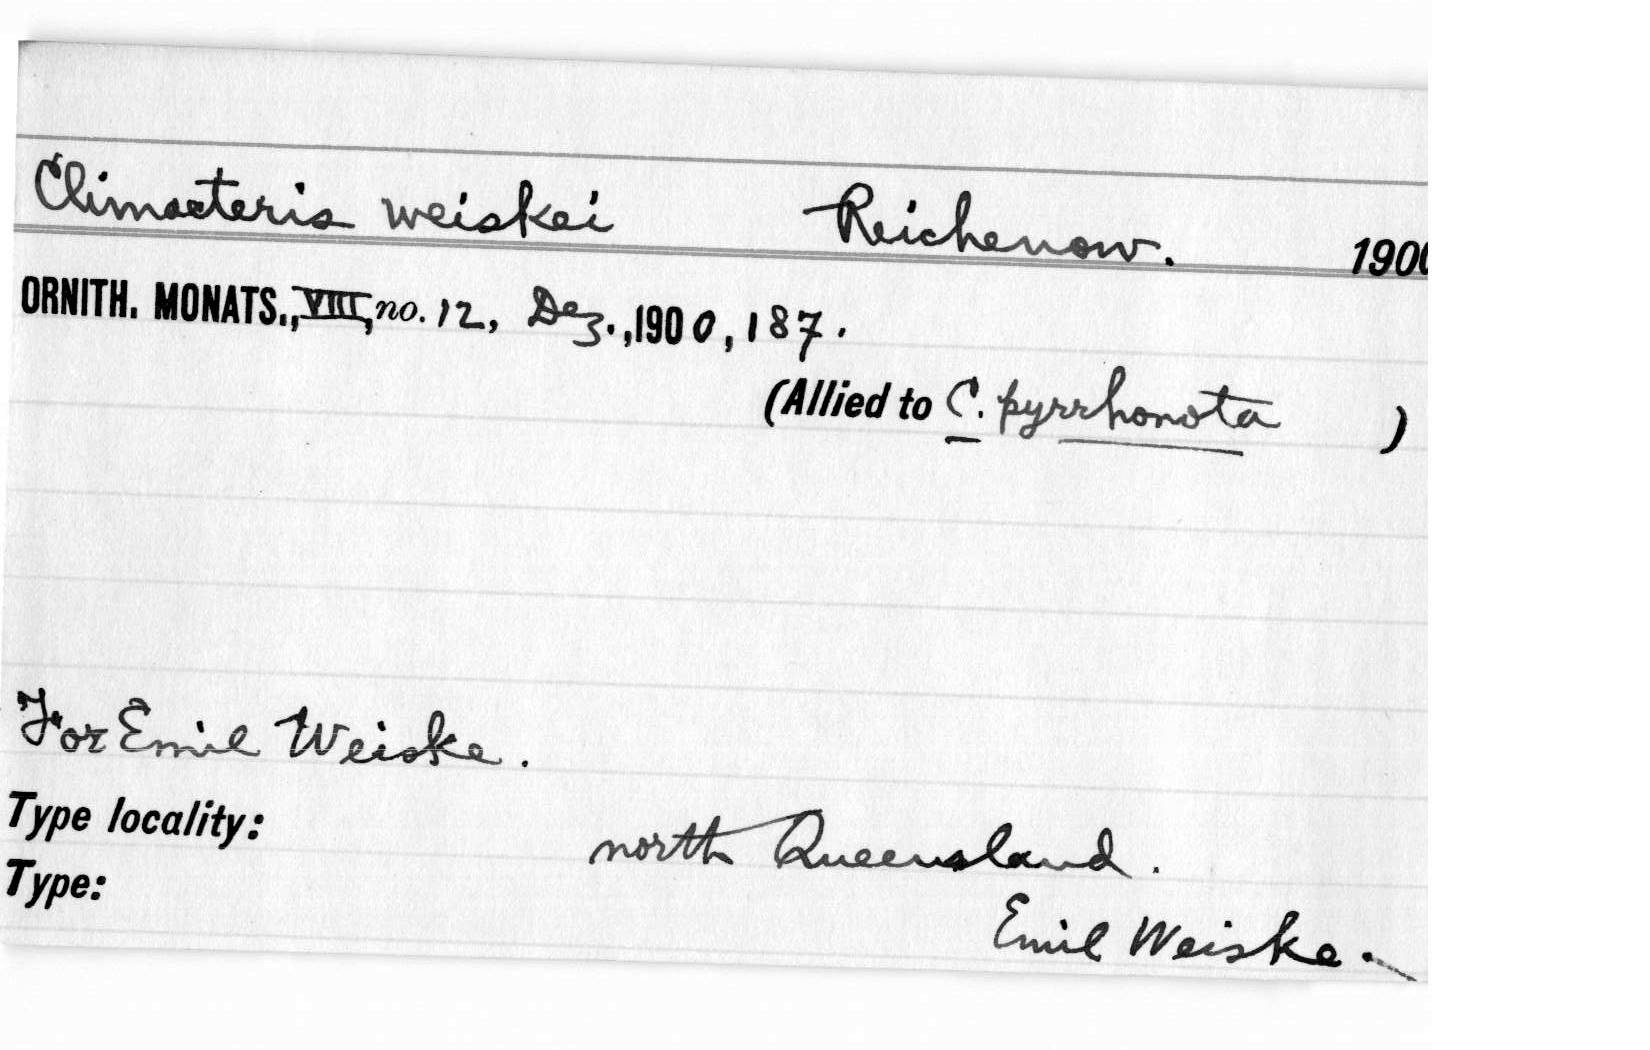 Climacteris weiskei Reichenow. 1900
ORNITH. MONATS., VIII, no. 12, Dez., 1900, 187.
(Allied to C. pyrrhonota )
For Emil Weiske.
Type locality: north Queensland.
Type: Emil Weiske.